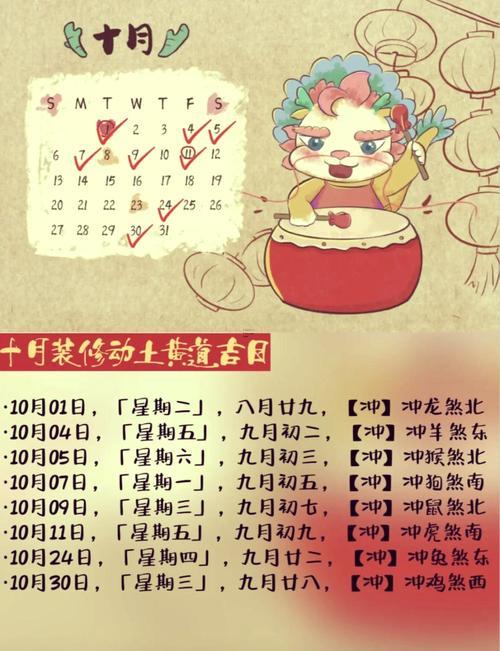 十月
S M T W T F S
1 2 3 4 5
6 7 8 9 10 11 12
13 14 15 16 17 18 19
20 21 22 23 24 25 26
27 28 29 30 31
十月装修动土黄道吉日
·10月01日，「星期二」，八月廿九，【冲】冲龙煞北
·10月04日，「星期五」，九月初二，【冲】冲羊煞东
·10月05日，「星期六」，九月初三，【冲】冲猴煞北
·10月07日，「星期一」，九月初五，【冲】冲狗煞南
·10月09日，「星期三」，九月初七，【冲】冲鼠煞北
·10月11日，「星期五」，九月初九，【冲】冲虎煞南
·10月24日，「星期四」，九月廿二，【冲】冲兔煞东
·10月30日，「星期三」，九月廿八，【冲】冲鸡煞西